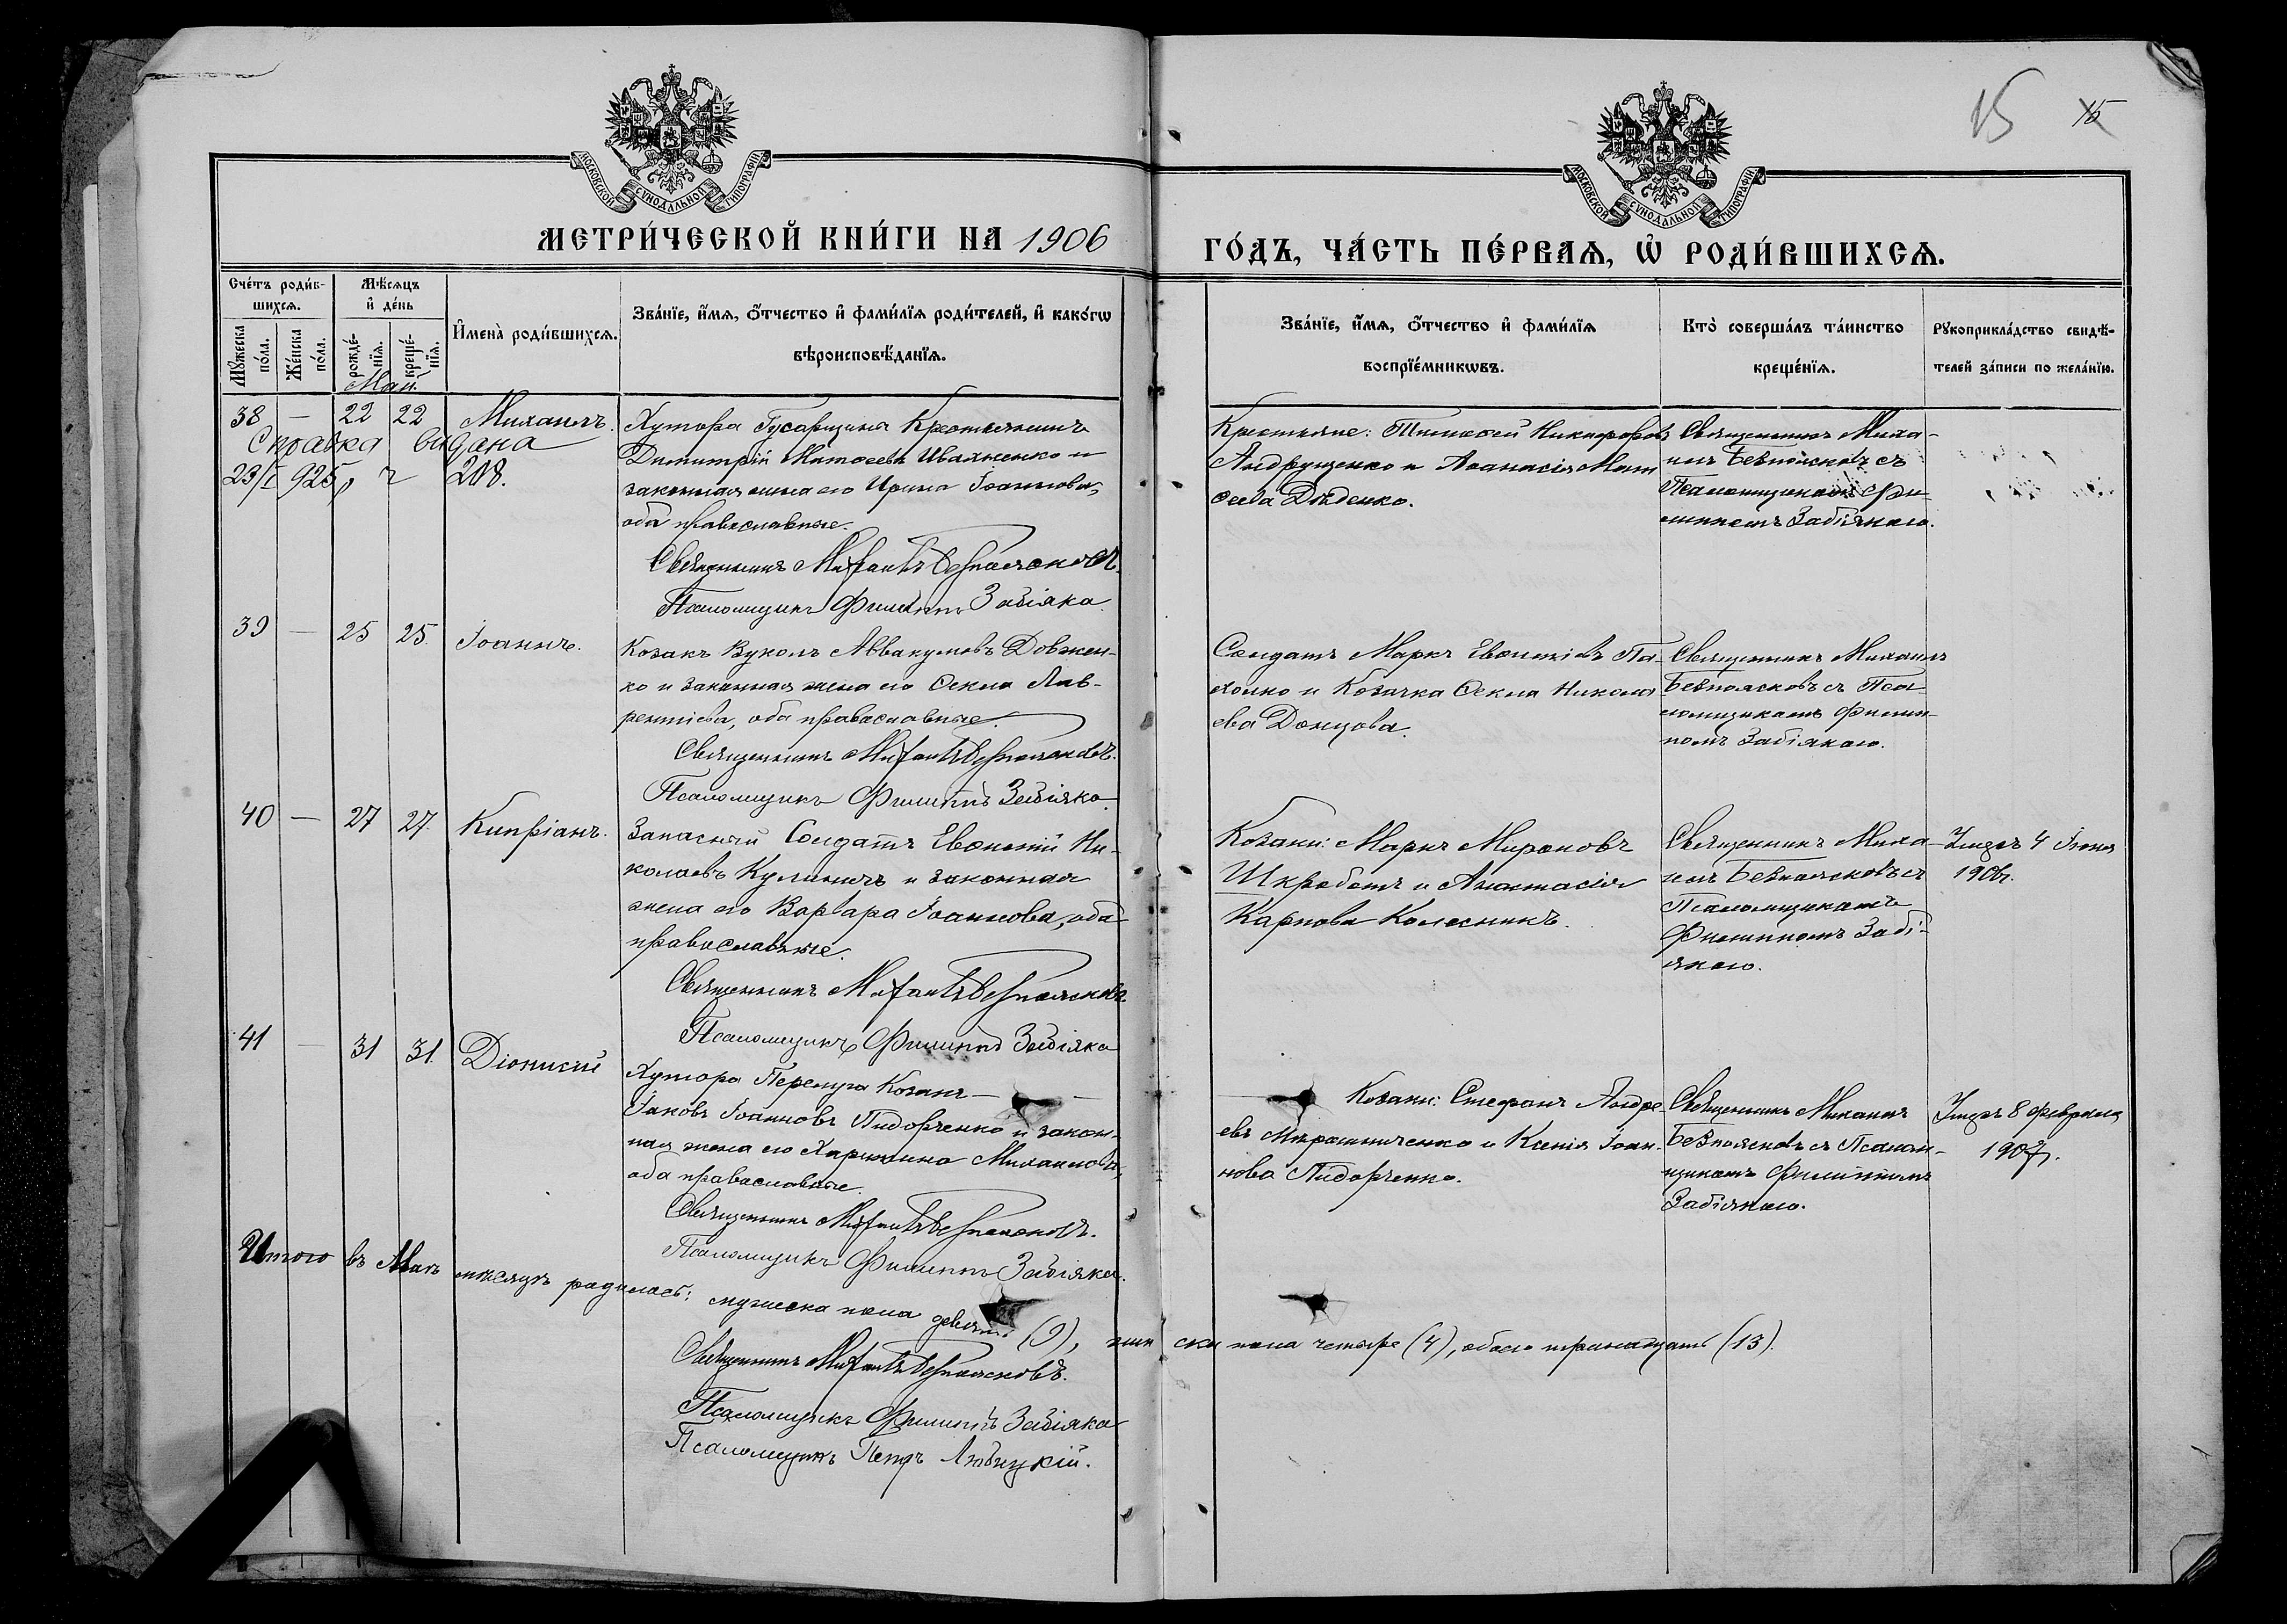 15 15
МОСКОВСКОЙ СѴНОДАЛЬНОЙ ТИПОГРАФІИ
МОСКОВСКОЙ СѴНОДАЛЬНОЙ ТИПОГРАФІИ
МЕТРИ́ЧЕСКОЙ КНИ́ГИ НА 1906
ГО́ДЪ, ЧА́СТЬ ПЕ́РВАѦ, Ѡ҆ РОДИ́ВШИХСѦ.
Сче́тъ роди́в-
шихсѧ.
Мꙋжеска по́ла.
Же́нска по́ла.
Мѣ́сѧцъ
и҆ де́нь
рожде́-
нїѧ.
креще́-
нїѧ.
И҆мена̀ роди́вшихсѧ.
Зва́нїе, и҆́мѧ, ѻ҆́тчество и҆ фами́лїѧ роди́телей, и҆ како́гѡ
вѣроисповѣ́данїѧ.
Зва́нїе, и҆́мѧ, ѻ҆́тчество и҆ фами́лїѧ
воспрїе́мникѡвъ.
Кто̀ соверша́лъ та́инство
креще́нїѧ.
Рꙋкоприкла́дство свидѣ́-
телей за́писи по жела́нїю.
Май.
38 — 22 22 Михаилъ.
Справка видана
23/I 925, 208.
Хутора Гусарщина Крестьянинъ
Димитрій Матѳеевъ Иваженко и
законная жена его Ирина Іоаннова,
оба православные.
Священникъ Михаилъ Безпоясковъ.
Псаломщикъ Филиппъ Забіяка.
Крестьяне: Тимоѳей Никифоровъ
Андрущенко и Аѳанасія Мат
ѳеева Дѣденко.
Священникъ Миха-
илъ Безпоясковъ съ
Псаломщикомъ Фи-
липпомъ Забіякою.
39 — 25 25. Іоаннъ.
Козакъ Вуколъ Аввакумовъ Довжен-
ко и законная жена его Ѳекла Лав-
рентіева, оба православные.
Священникъ Михаилъ Безпоясковъ.
Псаломщикъ Филиппъ Забіяка.
Солдатъ Маркъ Евѳиміевъ Па-
холко и Козачка Ѳекла Никола
ева Донцова.
Священникъ Михаилъ
Безпоясковъ съ Пса-
ломщикомъ Филип-
помъ Забіякою.
40 — 27 27. Кипріанъ.
Запасный Солдатъ Евѳимій Ни-
колаевъ Кулиничъ и законная
жена его Варвара Іоаннова, оба
православные.
Священникъ Михаилъ Безпоясковъ.
Псаломщикъ Филиппъ Забіяка
Козаки: Маркъ Мироновъ
Шкработъ и Анастасія
Карпова Колесникъ.
Священникъ Миха-
илъ Безпоясковъ съ
Псаломщикомъ
Филиппомъ Забі-
якою.
Умеръ 4 Іюня
1906г.
41 — 31 31. Діонисій
Хутора Перепуга Козакъ —
Іаковъ Іоанновъ Пидорченко и закон-
ная жена его Харитина Михаилова,
оба православные.
Священникъ Михаилъ Безпоясковъ.
Псаломщикъ Филиппъ Забіяка.
Козаки: Стефанъ Андре-
евъ Мирошниченко и Ксенія Іоан-
нова Пидорченко.
Священникъ Михаилъ
Безпоясковъ съ Псалом-
щикомъ Филиппомъ
Забіякою.
Умеръ 8 февраля
1907г.
Итого въ Маѣ мѣсяцѣ родилось: мужеска пола девять (9), женска пола четыре (4), обоего тринадцать (13).
Священникъ Михаилъ Безпоясковъ.
Псаломщикъ Филиппъ Забіяка
Псаломщикъ Петръ Любицкій.